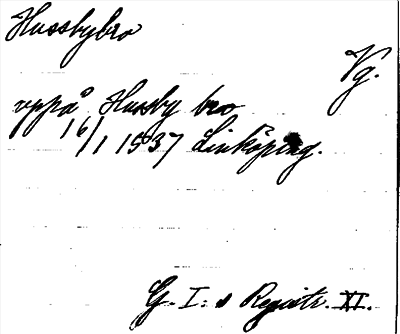 Hussbybro
Vg.
uppå Hussby bro
16/1 1537 Linköping.
G. I:s Registr. XI.